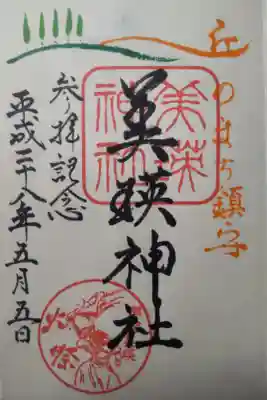 丘のまち鎮守
美瑛神社
美瑛神社
参拝記念
平成二十八年五月五日
火祭